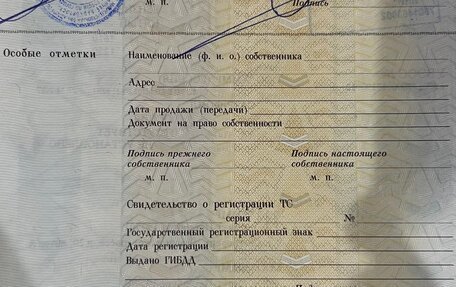 м. п. Подпись
Особые отметки
Наименование (ф. и. о.) собственника
Адрес
Дата продажи (передачи)
Документ на право собственности
Подпись прежнего собственника
Подпись настоящего собственника
м. п. м. п.
Свидетельство о регистрации ТС
серия №
Государственный регистрационный знак
Дата регистрации
Выдано ГИБДД